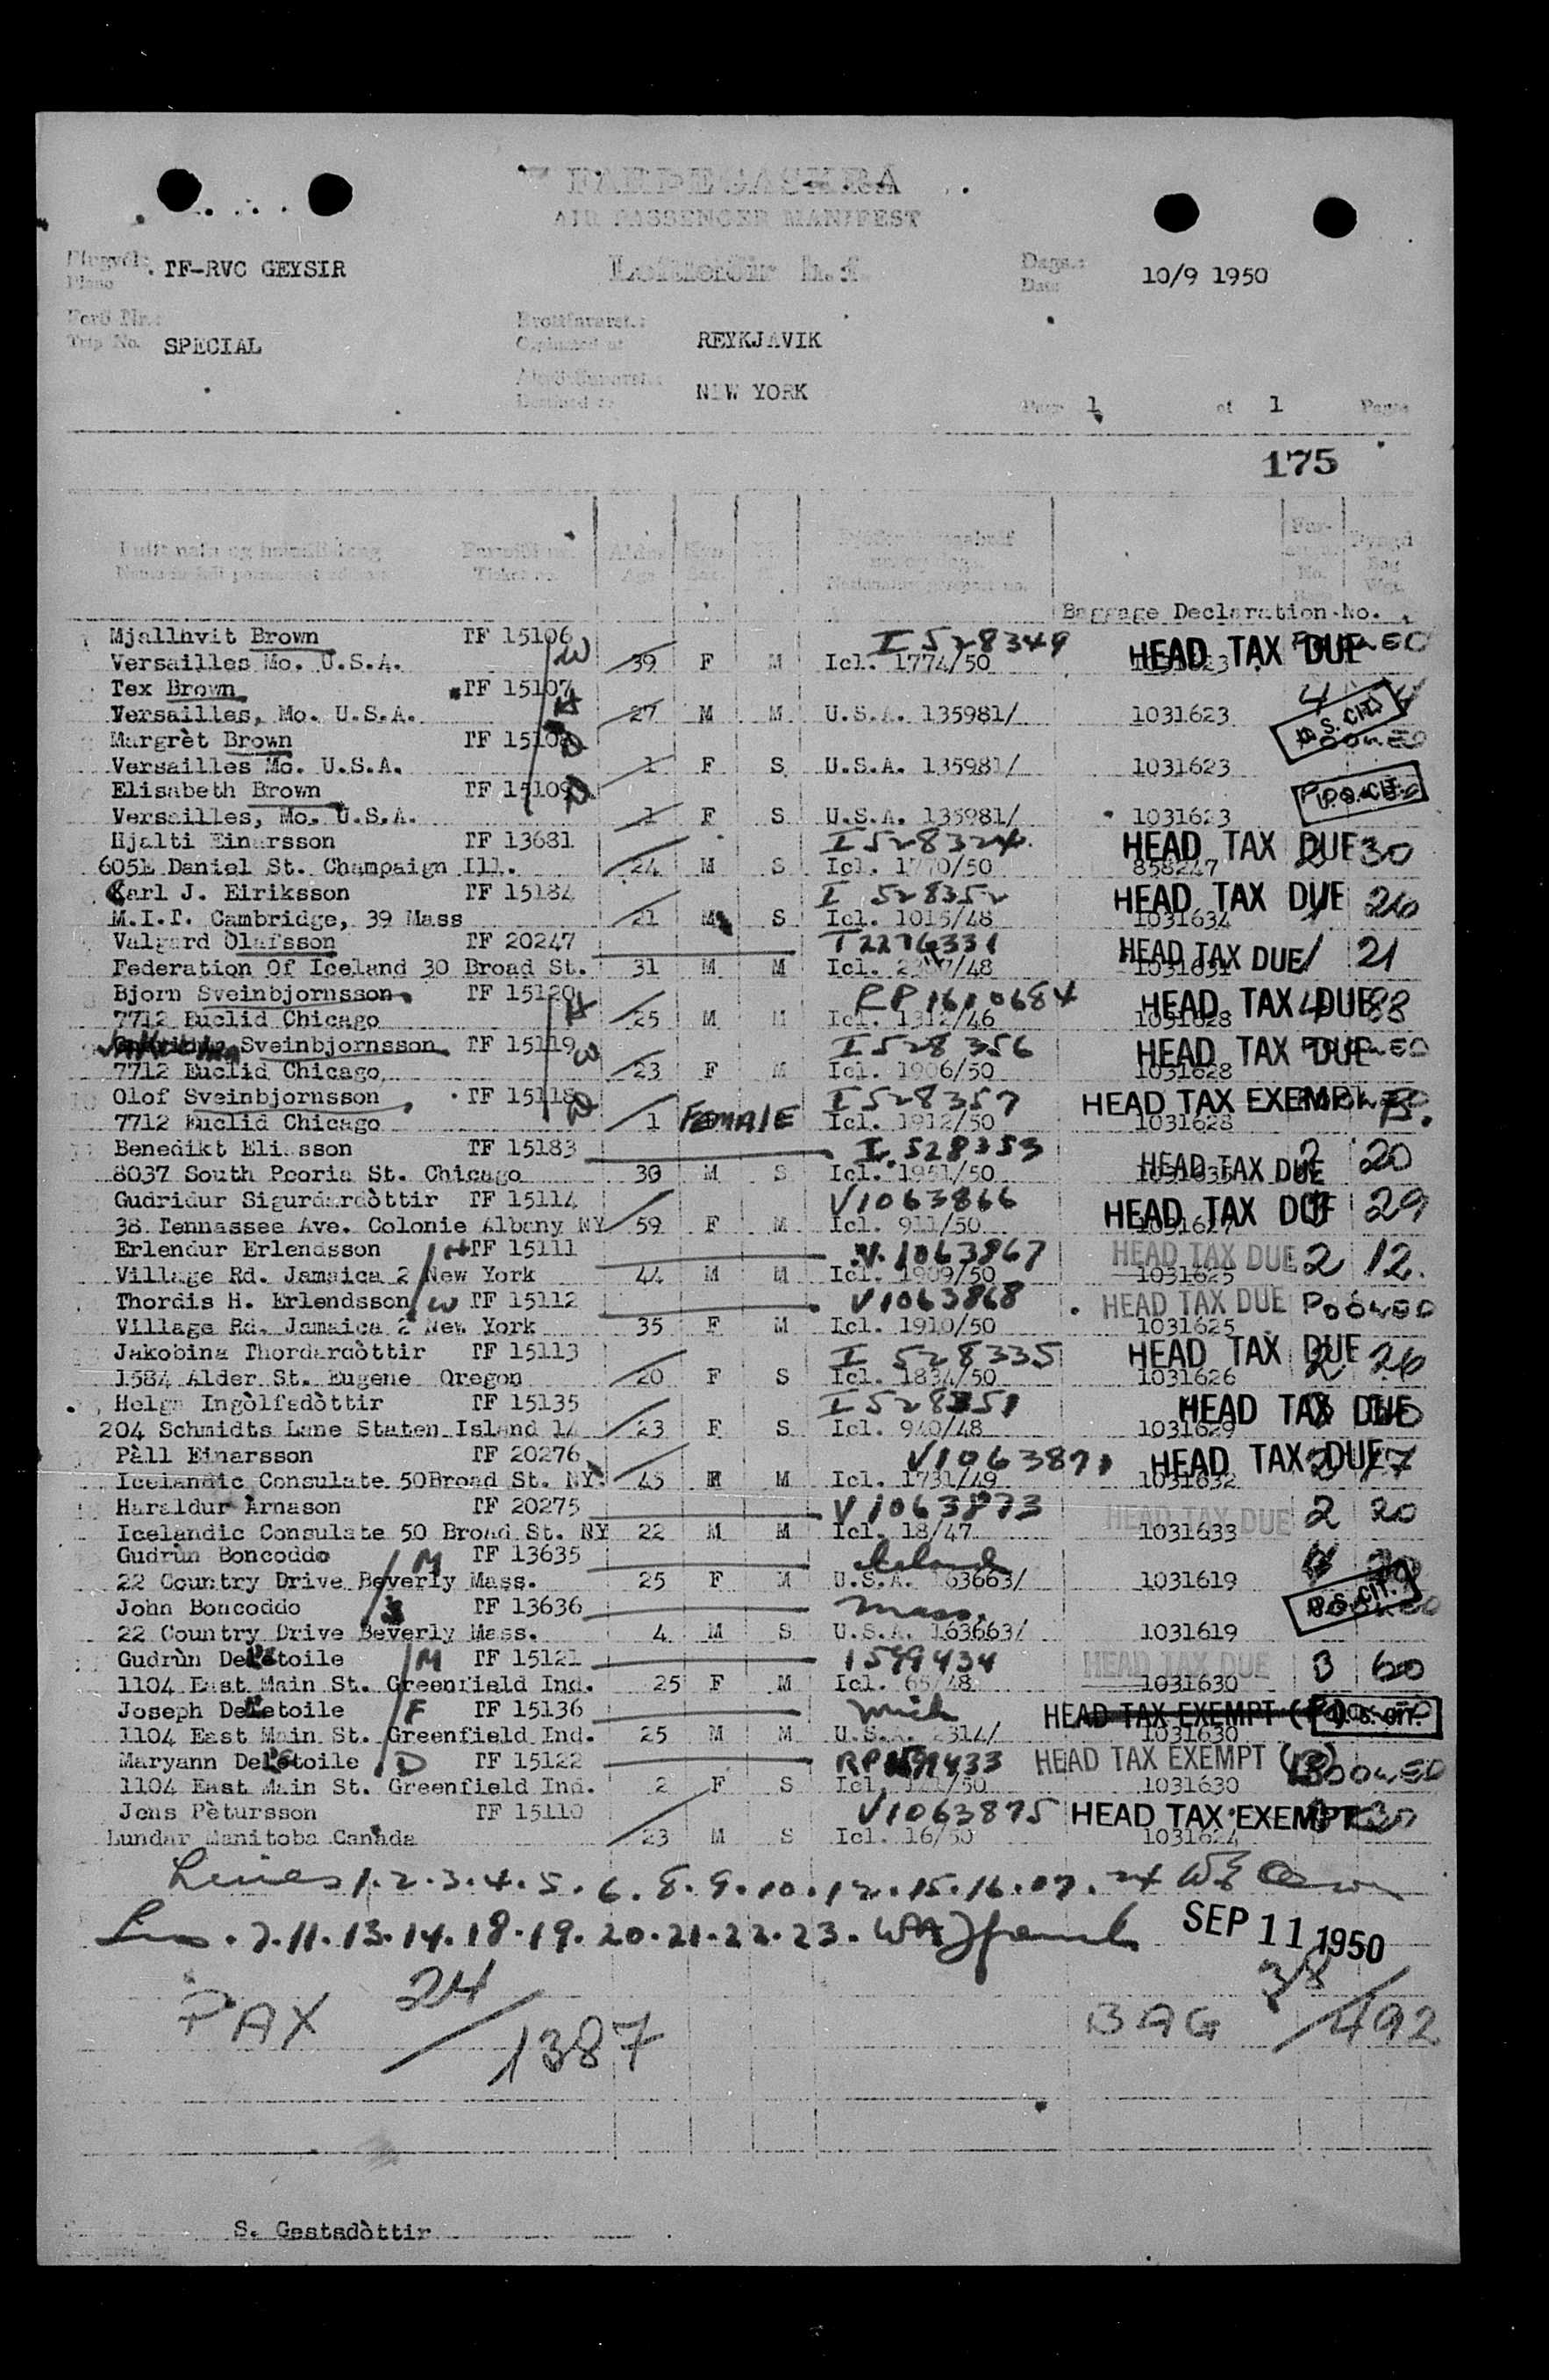 FARÞEGASKRÁ
AIR PASSENGER MANIFEST
Flugvél: TF-RVC GEYSIR Loftleiðir h.f. Dags.: 10/9 1950
Plane Date
Ferð Nr.: Brottfararst.:
Trip No. SPECIAL REYKJAVIK
NEW YORK
Page 1 of 1 Pages
175
Ticket no. Age
Baggage Declaration No.
Mjallhvit Brown TF 15106 W I 528349 HEAD TAX DUE POOLED
Versailles Mo. U.S.A. 39 F M Icl. 1774/50
Tex Brown TF 15107 H 4
Versailles, Mo. U.S.A. 27 M M U.S.A. 135981/ 1031623 U.S. CIT.
Margrèt Brown TF 15108 D POOLED
Versailles Mo. U.S.A. 1 F S U.S.A. 135981/ 1031623
Elisabeth Brown TF 15109 D U.S. CIT.
Versailles, Mo. U.S.A. 1 F S U.S.A. 135981/ 1031623
Hjalti Einarsson TF 13681 I 528324 HEAD TAX DUE 2 30
605E Daniel St. Champaign Ill. 24 M S Icl. 1770/50 858247
Karl J. Eiriksson TF 15184 I 528352 HEAD TAX DUE 1 26
M.I.T. Cambridge, 39 Mass 21 M S Icl. 1015/48 1031634
Valgard Òlafsson TF 20247 T2276331 HEAD TAX DUE 1 21
Federation Of Iceland 30 Broad St. 31 M M 1031631
Bjorn Sveinbjornsson TF 15120 H RP 1610684 HEAD TAX DUE 4 88
7712 Euclid Chicago 25 M M Icl. 1312/46 1031628
Sveinbjornsson TF 15119 W I 528356 HEAD TAX DUE POOLED
7712 Euclid Chicago 23 F M Icl. 1906/50 1031628
Olof Sveinbjornsson TF 15118 D I 528357 HEAD TAX EXEMPT
7712 Euclid Chicago 1 FEMALE Icl. 1912/50 1031628
Benedikt Eliasson TF 15183 I 528353 2 20
8037 South Peoria St. Chicago 30 M S Icl. 1951/50 HEAD TAX DUE
Gudridur Sigurdardòttir TF 15114 V1063866 HEAD TAX DUE 29
38 Tennassee Ave. Colonie Albany NY 59 F M Icl. 911/50 1031627
Erlendur Erlendsson H TF 15111 V 1063867 HEAD TAX DUE 2 12
Village Rd. Jamaica 2 New York 44 M M Icl. 1909/50 1031625
Thordis H. Erlendsson W TF 15112 V1063868 HEAD TAX DUE POOLED
Village Rd. Jamaica 2 New York 35 F M Icl. 1910/50 1031625
Jakobina Thordardòttir TF 15113 I 528335 HEAD TAX DUE 2 26
1584 Alder St. Eugene Oregon 20 F S Icl. 1834/50 1031626
Helga Ingòlfsdòttir TF 15135 I 528351 HEAD TAX DUE
204 Schmidts Lane Staten Island 14 23 F S Icl. 940/48 1031629
Pàll Einarsson TF 20276 V1063871 HEAD TAX DUE 17
Icelandic Consulate 50Broad St. NY 45 M Icl. 1731/49 1031632
Haraldur Àrnason TF 20275 V1063873 HEAD TAX DUE 2 20
Icelandic Consulate 50 Broad St. NY 22 M M Icl. 18/47 1031633
Gudrùn Boncoddo M TF 13635 Iceland
22 Country Drive Beverly Mass. 25 F M U.S.A. 163663/ 1031619
John Boncoddo S TF 13636 Mass. U.S. CIT.
22 Country Drive Beverly Mass. 4 M S U.S.A. 163663/ 1031619
Gudrùn DeLetoile M TF 15121 1599434 HEAD TAX DUE 3 60
1104 East Main St. Greenfield Ind. 25 F M Icl. 65/48 1031630
Joseph DeLetoile F TF 15136 Mich HEAD TAX EXEMPT U.S. CIT.
1104 East Main St. Greenfield Ind. 25 M M U.S.A. 2314/ 1031630
Maryann DeLetoile D TF 15122 RP1599433 HEAD TAX EXEMPT POOLED
1104 East Main St. Greenfield Ind. 2 F S Icl. 121/50 1031630
Jons Pètursson TF 15110 V1063875 HEAD TAX EXEMPT 30
Lundar Manitoba Canada 23 M S Icl. 16/50 1031624
Lines 1.2.3.4.5.6.8.9.10.12.15.16.17.24
Lines 7.11.13.14.18.19.20.21.22.23. SEP 11 1950
PAX 24/1387 BAG 38/492
S. Gestsdòttir